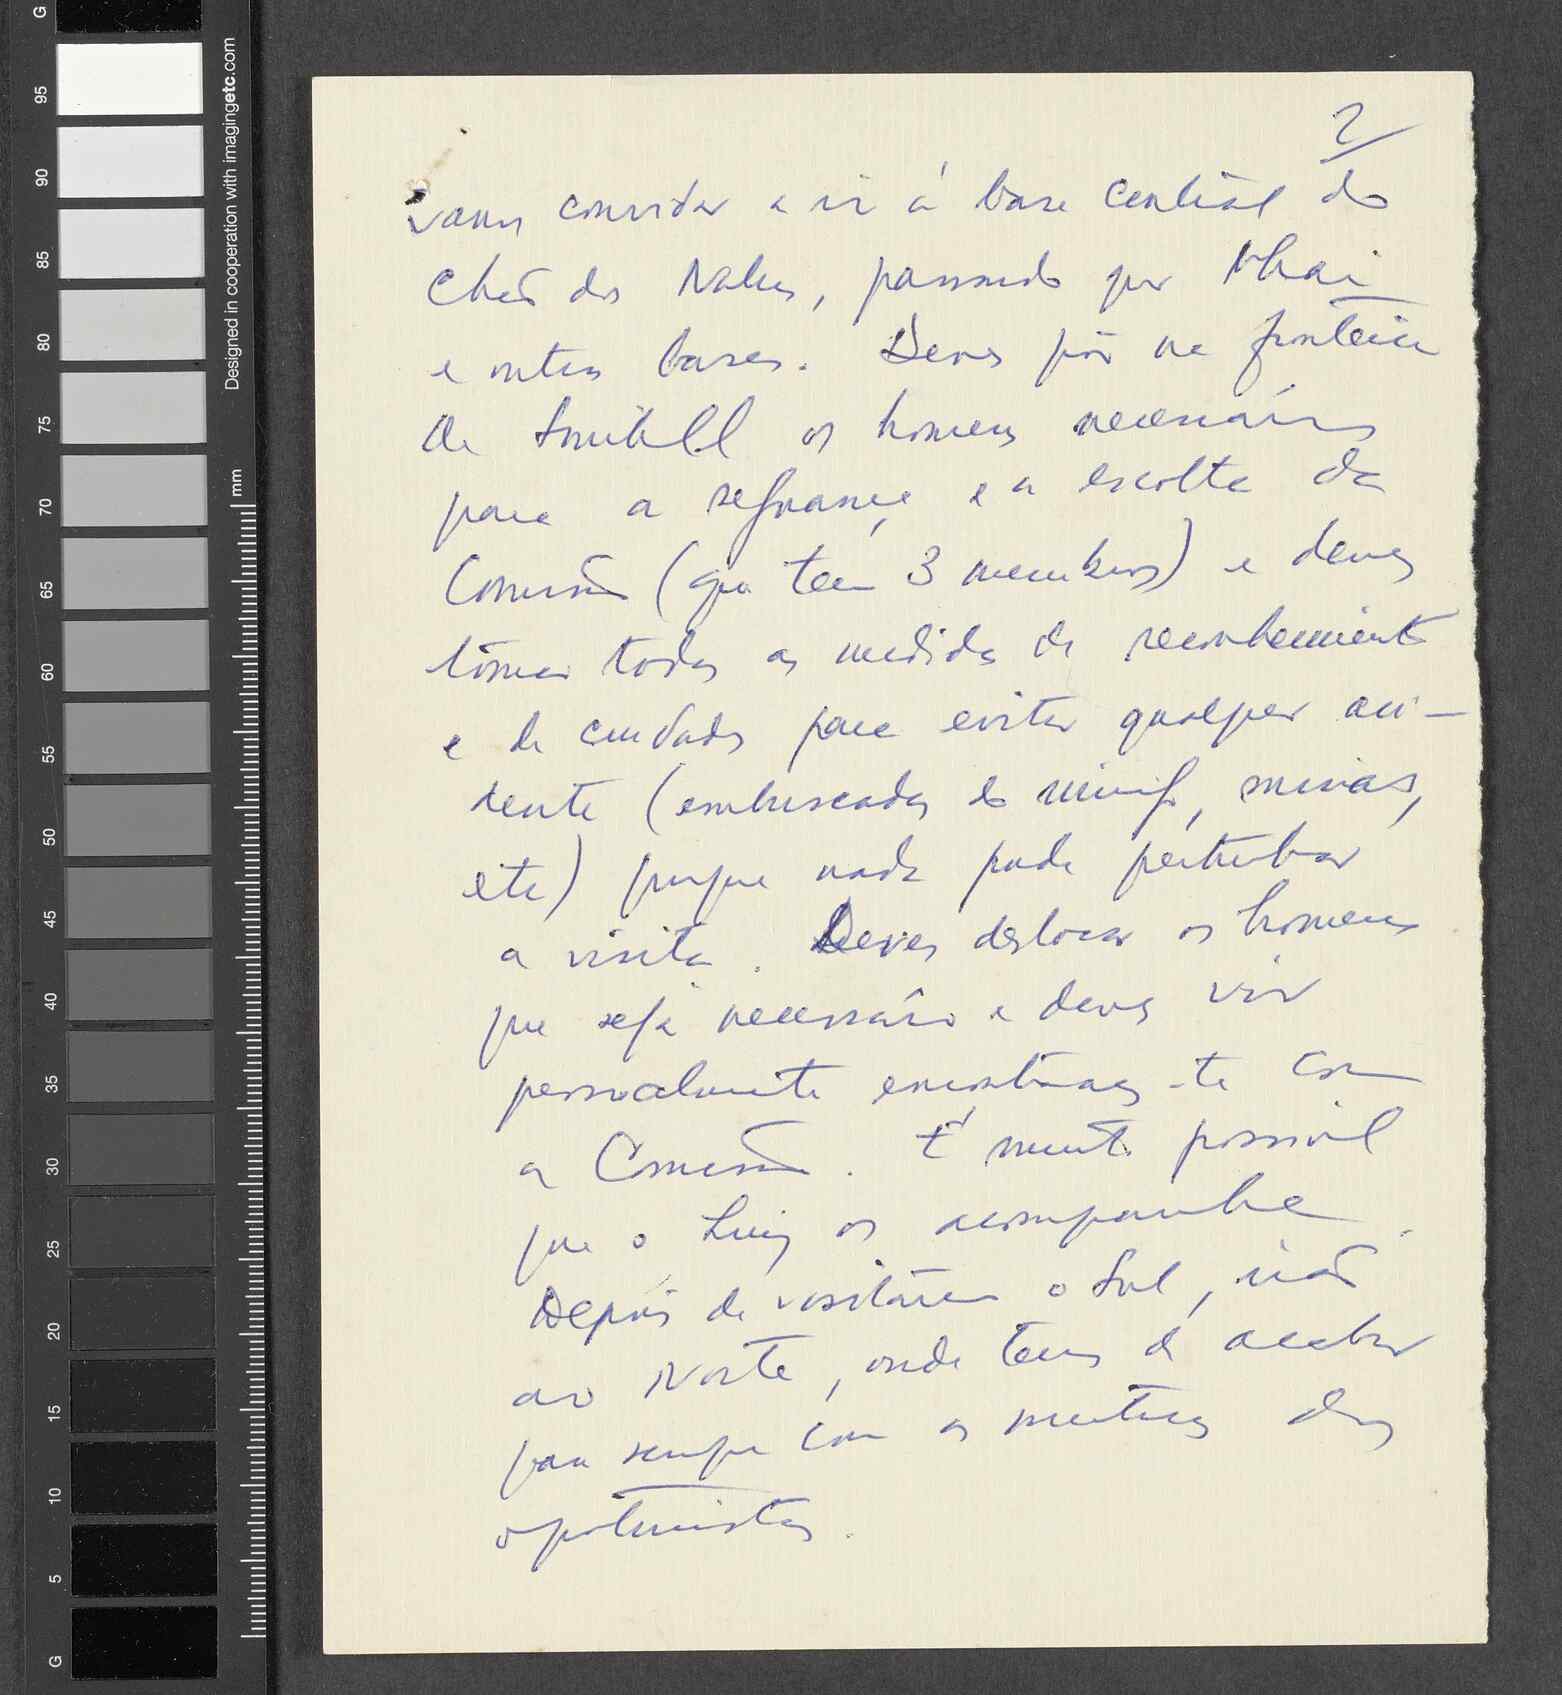 2
vamos convidar a ir à base central do
Chão dos Nalus, passando por Nhai
e outras bases. Deves pôr na fronteira
de Simbeli os homens necessários
para a segurança e a escolta da
Comissão (que tem 3 membros) e deves
tomar todas as medidas de reconhecimento
e de cuidados para evitar qualquer aci-
dente (embuscadas do inimigo, minas,
etc) porque nada pode perturbar
a visita. Deves deslocar os homens
que seja necessário e deves vir
pessoalmente encontrares-te com
a Comissão. É muito possível
que o Luiz os acompanhe.
Depois de visitarem o Sul, irão
ao Norte, onde temos de acabar
para sempre com as mentiras dos
oportunistas.
G
95
90
85
80
75
70
65
60
55
50
45
40
35
30
25
20
15
10
5
G
mm
Designed in cooperation with imagingetc.com